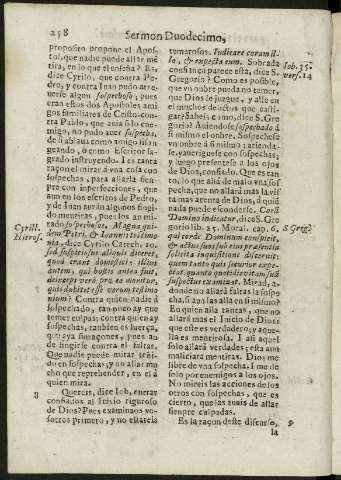 258
Sermon Duodecimo,
proposito propone el Apos-
tol, que nadie puede allar mé-
tira, en lo que el enseña? Es,
dice Cyrilo, que contra Pe-
dro, y contra Iuan pudo atre-
verse algun sospechoso, pues
eran estos dos Apostoles ami
gos familiares de Cristo: con-
tra Pablo, que aun solo ene-
migo, no pudo aver sospecha,
de si ablava como amigo lison-
geando, ò como Escritor sa-
grado instruyendo. I es tanta
raçon el mirar á vna cosa con
sospechas, para allarla siem-
pre con inperfecciones, que
aun en los escritos de Pedro,
y de Iuan surān algunos fingi-
do mentiras, pues los an mi-
rado sospechosos. Magna qui-
dem Petri, & Ioannis testimo
nia, dice Cyrilo Catech. 10.
sed suspectus aliquis diceret,
quod erant domestici: illius
autem, qui hostis antea fuit,
deinceps verò pro eo moritur,
quis dubitet esse verum testimo
nium? Contra quien nadie á
sospechado, tanpoco ay que
temer culpas; contra quien ay
sospechas, tanbien es fuerça,
que aya sinraçones, pues an
de fingirse contra él faltas.
Que nadie puede mirar teñi-
do en sospechas, y no allar mu
cho que reprehender, en el à
quien mira.
Cyrill.
Hieros.
8
Quereis, dice Iob, entrar
confiados al Iuicio riguroso
de Dios? Pues examinaos vo-
sotros primero, y no estareis
tumarosos. Iudicare coram il-
lo, & expecta eum. Sobrada
confiança parece esta, dice S.
Gregorio? Como es posible,
que vn onbre pueda no temer,
que Dios le juzgue, y alle en
el muchos delictos que casti-
gar? Sabeis como, dice S. Gre
gorio? Aviendose sospechado á
si mismo el onbre. Sospechese
vn onbre á si mismo; atienda-
se, yaverigüese con sospechas;
y luego presentese a los ojos
de Dios, confiado. Que es tan-
to, lo que allá de malo vna sos-
pecha, que no allará más la vis-
ta mas atenta de Dios, á quié
nada puede escondersele. Corã
Domino iudicatur, dice S. Gre
gorio lib. 25. Moral. cap. 6.
qui corde Dominum conspicit,
& actus suos sub eius præsentia
solicita inquisitione discernit:
quem tanto quis securior expe-
ctat, quanto quotidie vitam suā
suspectus examinat. Mirad, a-
donde no allará faltas la sospe
cha, si aun las alla en si mismo?
En quien alla tantas, que no
allará mas el Iuicio de Dios:
que este es verdadero; y aque-
lla es mentirosa. I asi aquel
solo allará verdades; esta aun
maliciará mentiras. Dios me
libre de vna sospecha. I me dé
solo por enemigos a los ojos.
No mireis las acciones de los
otros con sospechas, que es
cierto, que las aueis de allar
sienpre culpadas.
Iob. 35.
vers. 14
S Grigo
Es la raçon deste discurso,
9
la